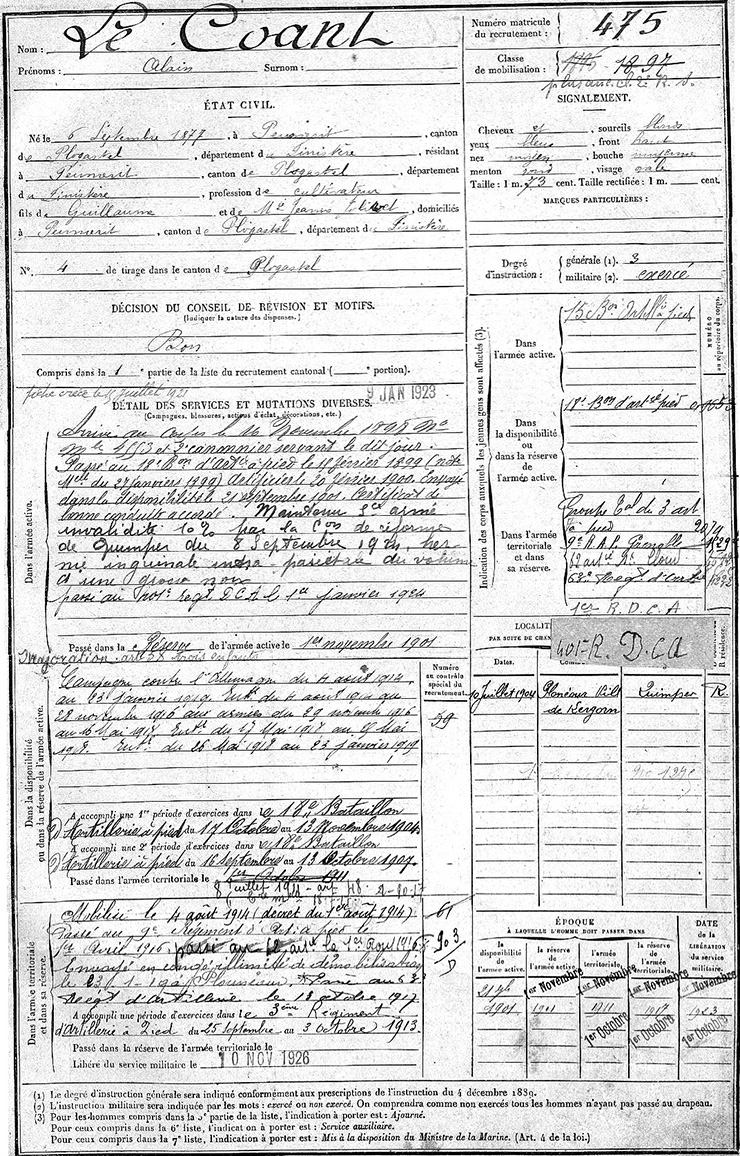 Nom : Le Coant
Prénoms : Alain Surnom :
ÉTAT CIVIL.
Né le 6 Septembre 1877, à Peumerit, canton
de Plogastel, département du Finistère, résidant
à Peumerit, canton de Plogastel, département
du Finistère, profession de cultivateur
fils de Guillaume et de Mie Jeanne, domiciliés
à Peumerit, canton de Plogastel, département du Finistère
N° 4 de tirage dans le canton de Plogastel
DÉCISION DU CONSEIL DE RÉVISION ET MOTIFS.
(Indiquer la nature des dispenses.)
Bon
Compris dans la 1e partie de la liste du recrutement cantonal ( portion).
Numéro matricule
du recrutement : 475
Classe
de mobilisation : 1897
SIGNALEMENT.
Cheveux et sourcils blonds
yeux bleus, front haut
nez moyen, bouche moyenne
menton rond, visage ovale
Taille : 1 m. 73 cent. Taille rectifiée : 1 m. cent.
MARQUES PARTICULIÈRES :
Degré
d'instruction :
générale (1). 3
militaire (2). exercé
fiche créée le juillet 1921
9 JAN 1923
DÉTAIL DES SERVICES ET MUTATIONS DIVERSES.
(Campagnes, blessures, actions d'éclat, décorations, etc.)
Dans l'armée active.
Arrivé au corps le 16 Novembre 1898 No
mle et 2e canonnier servant le dit jour.
Passé au 18e Bon d'Artie à pied le février 1899 (note
Mlle du 27 janvier 1899) Artificier le 20 février 1900. Envoyé
dans la disponibilité le 21 septembre 1901. Certificat de
bonne conduite accordé. Maintenu Sce armé
invalidité 10% par la Con de réforme
de Quimper du 8 Septembre 1921, her-
nie inguinale intra-pariétale du volume
d'une grosse noix
passé au 401e Regt D.C.A le 1er janvier 1924
Passé dans la Réserve de l'armée active le 1er novembre 1901
Majoration art 58 trois enfants
Indication des corps auxquels les jeunes gens sont affectés (3).
NUMÉRO
au répertoire du corps.
Dans
l'armée active.
15 Bon Artill à pied
Dans
la disponibilité
ou dans la réserve
de l'armée active.
18e Bon d'artie à pied
Dans l'armée
territoriale et dans
sa réserve.
Groupe Tal du 3 art
à pied
9e R.A.P.
62e Regt d'artie
1er R.D.C.A
401 R. D.C.A
LOCALITÉ
PAR SUITE DE CHAN
Dates.
R résidence.
10 juillet 1904 Plonéour Quimper R
de Kergorn
Dans la disponibilité
ou dans la réserve de l'armée active.
Numéro
au contrôle
spécial du
recrutement.
59
Campagne contre l'Allemagne du 4 août 1914
au 23 janvier 1919. Intr du 4 août 1914 au
28 novembre 1916 aux armées du 29 novembre 1916
au 16 Mai 1917. Intr du 17 Mai 1917 au Mai
1918. Intr du 26 Mai 1918 au 23 janvier 1919
A accompli une 1re période d'exercices dans le 18e Bataillon
d'Artillerie à pied du 17 Octobre au 13 Novembre 1904.
A accompli une 2e période d'exercices dans le 18e Bataillon
d'Artillerie à pied du 16 septembre au 13 Octobre 1907.
Passé dans l'armée territoriale le 1er Octobre 1911
8 juillet 1911 - art 48
Dans l'armée territoriale
et dans sa réserve.
61
903
D
Mobilisé le 4 août 1914 (décret du 1er août 1914)
Passé au 9e Régiment d'Art à pied le
1er Avril 1916, passé au art le 1er Août 1916
Envoyé en congé illimité de démobilisation
le 23-1-1919 Plonéour Passé au 62e
Regt d'Artillerie le 1 octobre 1917
A accompli une période d'exercices dans le 3ème Régiment
d'Artillerie à Pied du 25 Septembre au 3 Octobre 1913.
Passé dans la réserve de l'armée territoriale le
Libéré du service militaire le 10 NOV 1926
ÉPOQUE
À LAQUELLE L'HOMME DOIT PASSER DANS
DATE
DE LA
LIBÉRATION
du service
militaire.
la disponibilité
de l'armée active.
la réserve
de l'armée active.
l'armée
territoriale.
la réserve
de l'armée
territoriale.
1er Novembre 1er Novembre 1er Novembre 1er Novembre
1901 1911 1911 1917 1923
1er Octobre 1er Octobre 1er Octobre
(1) Le degré d'instruction générale sera indiqué conformément aux prescriptions de l'instruction du 4 décembre 1889.
(2) L'instruction militaire sera indiquée par les mots : exercé ou non exercé. On comprendra comme non exercés tous les hommes n'ayant pas passé au drapeau.
(3) Pour les hommes compris dans la 5e partie de la liste, l'indication à porter est : Ajourné.
Pour ceux compris dans la 6e liste, l'indication à porter est : Service auxiliaire.
Pour ceux compris dans la 7e liste, l'indication à porter est : Mis à la disposition du Ministre de la Marine. (Art. 4 de la loi.)